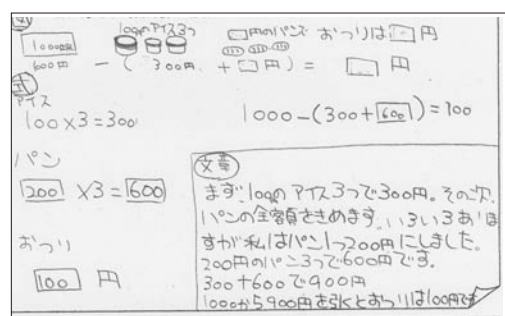 図
100円のアイス3つ □円のパン3つ おつりは□円
1000円
600円 - ( 300円 + □円 ) = □円
式
アイス
100×3=300
1000-(300+600)=100
パン
200×3=600
おつり
100円
文章
まず、100円のアイス3つで300円。その次、
パンの全額をきめます。いろいろあり
ますが私はパン1つ200円にしました。
200円のパン3つで600円です。
300+600で900円
1000から900円を引くとおつりは100円です